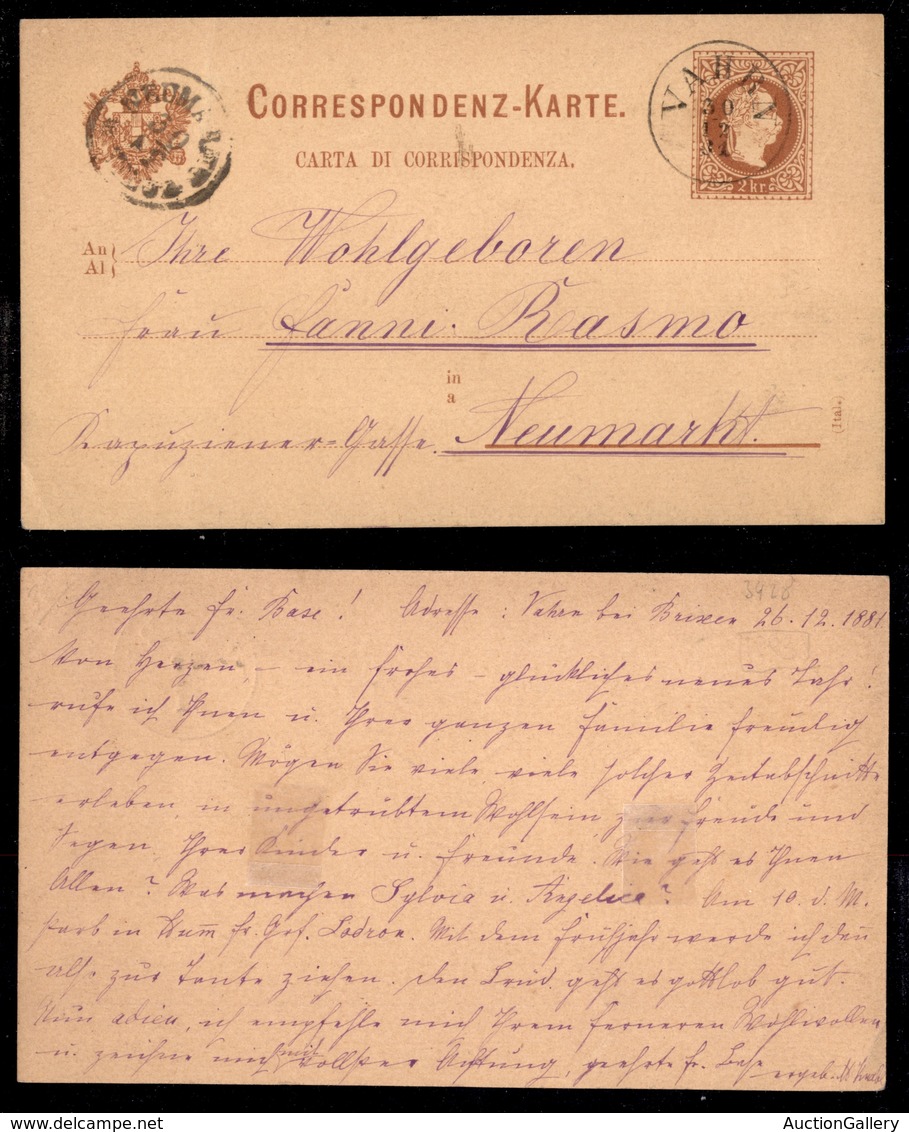 CORRESPONDENZ-KARTE.
CARTA DI CORRISPONDENZA.
VAHRN
30
12
81
2 kr
An
Al
Ihre Wohlgeboren
Frau Fanni Rasmo
in
a
Kapuziener-Gasse. Neumarkt.
(Ital.)
3428
Geehrte Fr. Base! Adresse: Vahrn bei Brixen 26.12.1881.
Von Herzen – ein frohes – glückliches neues Jahr!
rufe ich Ihnen u. Ihrer ganzen Familie freudig
entgegen. Mögen Sie viele, viele solcher Zeitabschnitte
erleben, in ungetrübtem Wohlsein, zur Freude und
Segen, Ihrer Kinder u. Freunde. Wie geht es Ihnen
Allen? Was machen Sylvia u. Angelica? Am 10. d. M.
starb in Fr. Gof. Lodron. Mit dem Frühjahr werde ich dann
also zur Tante ziehen. geht es gottlob gut.
Nun adieu, ich empfehle mich Ihrem ferneren Wohlwollen
u. zeichne mich mit vollster Achtung, geehrte Fr. Base ergeb.
AuctionGallery